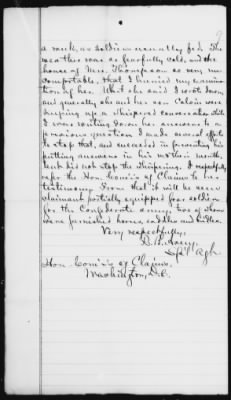 9
a week, as soldiers usually fed. The
weather was so fearfully cold, and the
house of Mrs. Thompson so very un-
comfortable, that I hurried my examina-
tion of her. What she said I wrote down,
and generally she and her son Calvin were
keeping up a whispered conversation while
I was writing down her answers to a
previous question. I made several efforts
to stop that, and succeeded in preventing his
putting answers in his mother's mouth,
but did not stop the whispering. I respectfully
refer the Hon. Com'rs of Claims to her
testimony. From that it will be seen
claimant partially equipped four soldiers
for the Confederate army, two of whom
were furnished horses, saddles and bridles.
Very respectfully,
Spl. Agt.
Hon. Com'rs of Claims,
Washington, D.C.